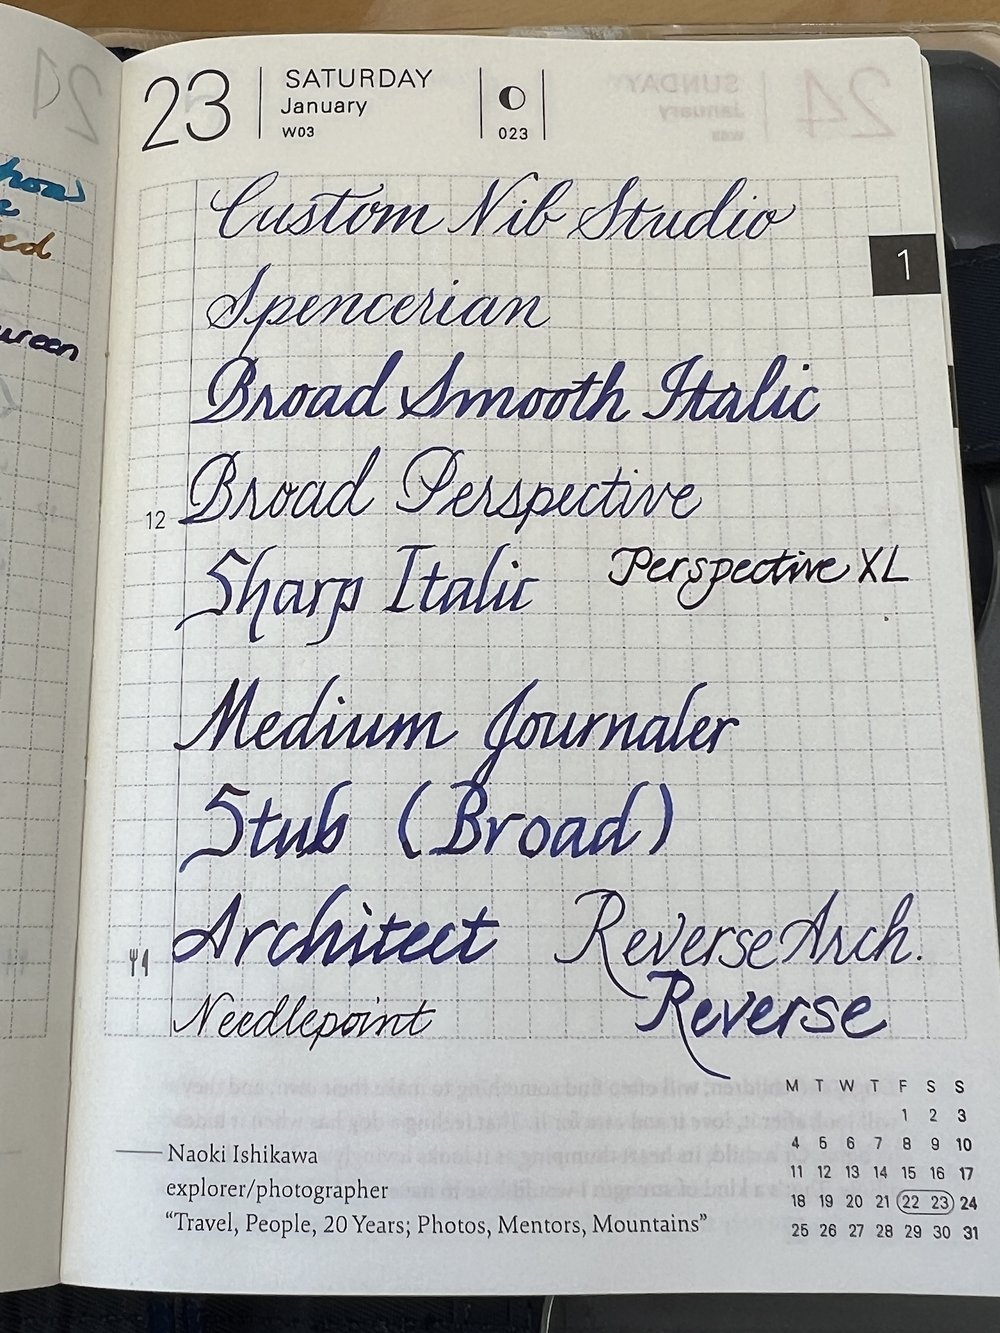 21
hoal
ed
ureen
23
SATURDAY
January
W03
023
SUNDAY
January
24
Custom Nib Studio
1
Spencerian
Broad Smooth Italic
Broad Perspective
12
Sharp Italic
Perspective XL
Medium Journaler
Stub (Broad)
Architect
Reverse Arch.
Reverse
Needlepoint
M T W T F S S
1 2 3
4 5 6 7 8 9 10
11 12 13 14 15 16 17
18 19 20 21 22 23 24
25 26 27 28 29 30 31
Naoki Ishikawa
explorer/photographer
“Travel, People, 20 Years; Photos, Mentors, Mountains”